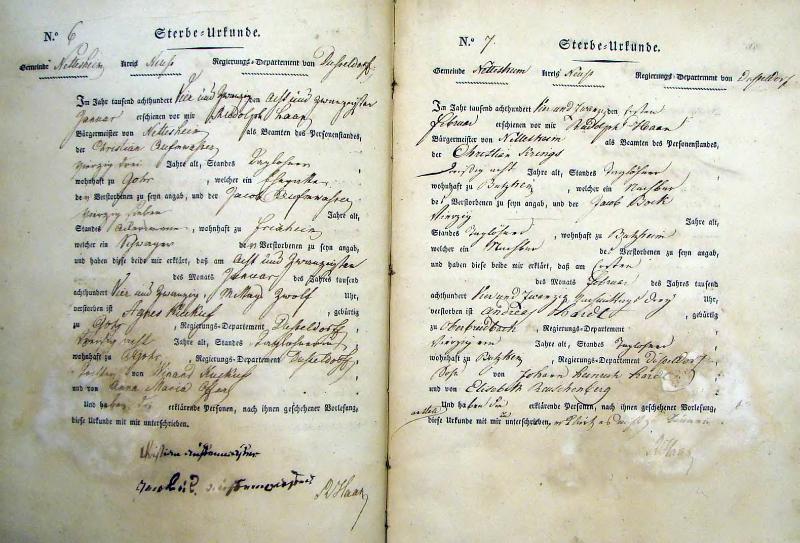 N.º 6
Sterbe-Urkunde.
Gemeinde Nettesheim Kreis Neuss Regierungs-Departement von Dusseldorf
Im Jahr tausend achthundert Vier und Zwanzig den Acht und Zwanzigsten
Januar erschienen vor mir Rudolph Haan
Bürgermeister von Nettesheim als Beamten des Personenstandes,
der Christian
vierzig drei Jahre alt, Standes Taglöhner
wohnhaft zu Gohr, welcher ein
de Verstorbenen zu seyn angab, und der Jacob
vierzig sieben Jahre alt,
Standes Ackermann, wohnhaft zu
welcher ein Schwager de Verstorbenen zu seyn angab,
und haben diese beide mir erklärt, daß am Acht und Zwanzigsten
des Monats Januar des Jahres tausend
achthundert Vier und Zwanzig, Mittag Zwölf Uhr,
verstorben ist Agnes, gebürtig
zu Gohr, Regierungs-Departement Dusseldorf
Jahre alt, Standes Taglöhnerin
wohnhaft zu Gohr, Regierungs-Departement Dusseldorf
Tochter von
und von Anna Maria
Und haben die erklärende Personen, nach ihnen geschehener Vorlesung,
diese Urkunde mit mir unterschrieben.
Christian
RHaan
N.º 7.
Sterbe-Urkunde.
Gemeinde Nettesheim Kreis Neuss Regierungs-Departement von Dusseldorf
Im Jahr tausend achthundert Vier und Zwanzig den Ersten
Februar erschienen vor mir Rudolph Haan
Bürgermeister von Nettesheim als Beamten des Personenstandes,
der Christian Krings
dreißig acht Jahre alt, Standes Taglöhner
wohnhaft zu Butzheim, welcher ein Nachbar
des Verstorbenen zu seyn angab, und der Jacob Bock
Vierzig Jahre alt,
Standes Taglöhner, wohnhaft zu Butzheim
welcher ein Nachbar des Verstorbenen zu seyn angab,
und haben diese beide mir erklärt, daß am Ersten
des Monats Februar des Jahres tausend
achthundert Vier und Zwanzig Nachmittags drey Uhr,
verstorben ist Andreas, gebürtig
zu, Regierungs-Departement
Vierzig ein Jahre alt, Standes Taglöhner
wohnhaft zu Butzheim, Regierungs-Departement Dusseldorf
Sohn von Johann Heinrich
und von Elisabeth Rauschenberg
Und haben die erklärende Personen, nach ihnen geschehener Vorlesung,
diese Urkunde mit mir unterschrieben,
RHaan